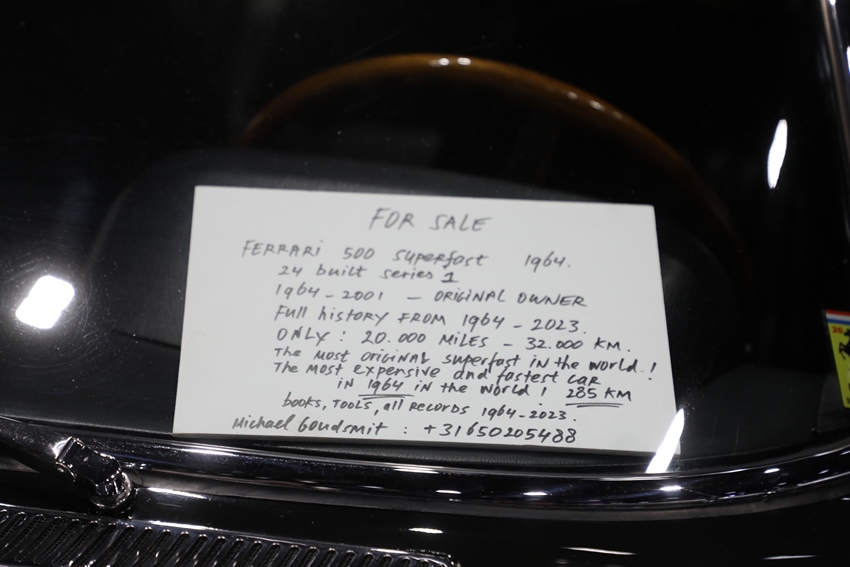 FOR SALE
FERRARi 500 superfast 1964.
24 built series 1
1964-2001 – ORIGINAL OWNER
Full history FROM 1964 – 2023.
ONLY : 20.000 MILES – 32.000 KM.
The most ORIGINAL superfast in the world !
The most expensive and fastest car
iN 1964 in the world ! 285 KM
books, TOOLS, all RECORDS 1964-2023.
Michael Goudsmit : +31650205488
20